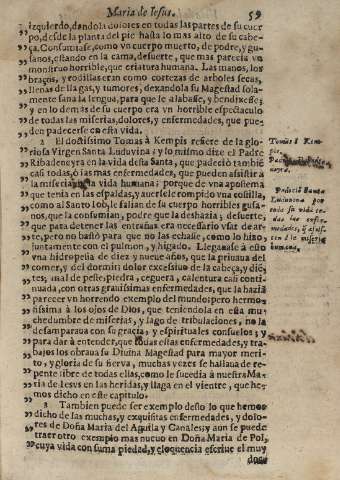 Maria de Iesus. 59
izquierdo, dandola dolores en todas las partes de su cuer-
po, desde la planta del pie hasta lo mas alto de su cabe-
ça. Consumiase, como vn cuerpo muerto, de podre, y gu-
sanos, estando en la cama, desuerte, que mas parecia vn
monstruo horrible, que criatura humana. Las manos, los
braços, y rodillas eran como cortezas de arboles secas,
llenas de llagas, y tumores, dexandola su Magestad sola-
mente sana la lengua, para que le alabasse, y bendixesse;
y en lo demàs de su cuerpo era vn horrible espectaculo
de todas las miserias, dolores, y enfermedades, que pue-
den padecerse en esta vida.
El doctissimo Tomàs à Kempis refiere de la glo-
riosa Virgen Santa Luduvina; y lo mismo dize el Padre
Ribadeneyra en la vida desta Santa, que padeciò tambiè
casi todas, ò las mas enfermedades, que pueden assistir a
la miseria vida humana; porque de vna apostema
que tenia en las espaldas, y auersele rompido vna costilla,
como al Santo Iob, le salian de su cuerpo horribles gusa-
nos, que la consumian, podre que la deshazia; desuerte,
que para detener las entrañas era necessario vsar de ar-
te, pero no bastò para que no las echasse, como lo hizo,
juntamente con el pulmon, y higado. Llegasele à esto
vna hidropesia de diez y nueue años, que la priuaua del
comer, y del dormir dolor excessiuo de la cabeça, y diẽ-
tes, mal de peste, piedra, ceguera, calentura casi conti-
nuada, con otras grauissimas enfermedades, que la haziã
parecer vn horrendo exemplo del mundo; pero hermo-
sissima à los ojos de Dios, que teniendola en esta mu-
chedumbre de miserias, y lago de tribulaciones, no la
desamparaua con su gracia, y espirituales consuelos; y
para dar à entender, que todas estas enfermedades, y tra-
bajos los obraua su Diuina Magestad para mayor meri-
to, y gloria de su sierva, muchas vezes se hallaua de re-
pente libre de todas ellas, como le sucedia à nuestra Ma-
ria de Iesus en las heridas, y llaga en el vientre, que he-
mos dicho en este capitulo.
3 Tambien puede ser exemplo desto lo que hemos
dicho de las muchas, y exquisitas enfermedades, y dolo-
res de Doña Maria del Aguila y Canales; y aun se puede
traer otro exemplo mas nueuo en Doña Maria de Pol,
cuya vida con suma piedad, y eloquencia escriue el muy
doc-
Tomàs à Kem-
pis,
Padre
neyra.
Padeciò Santa
Luduvina por
toda su vida to-
das las enfer-
medades, q̃ assis-
ten à la miseria
humana.